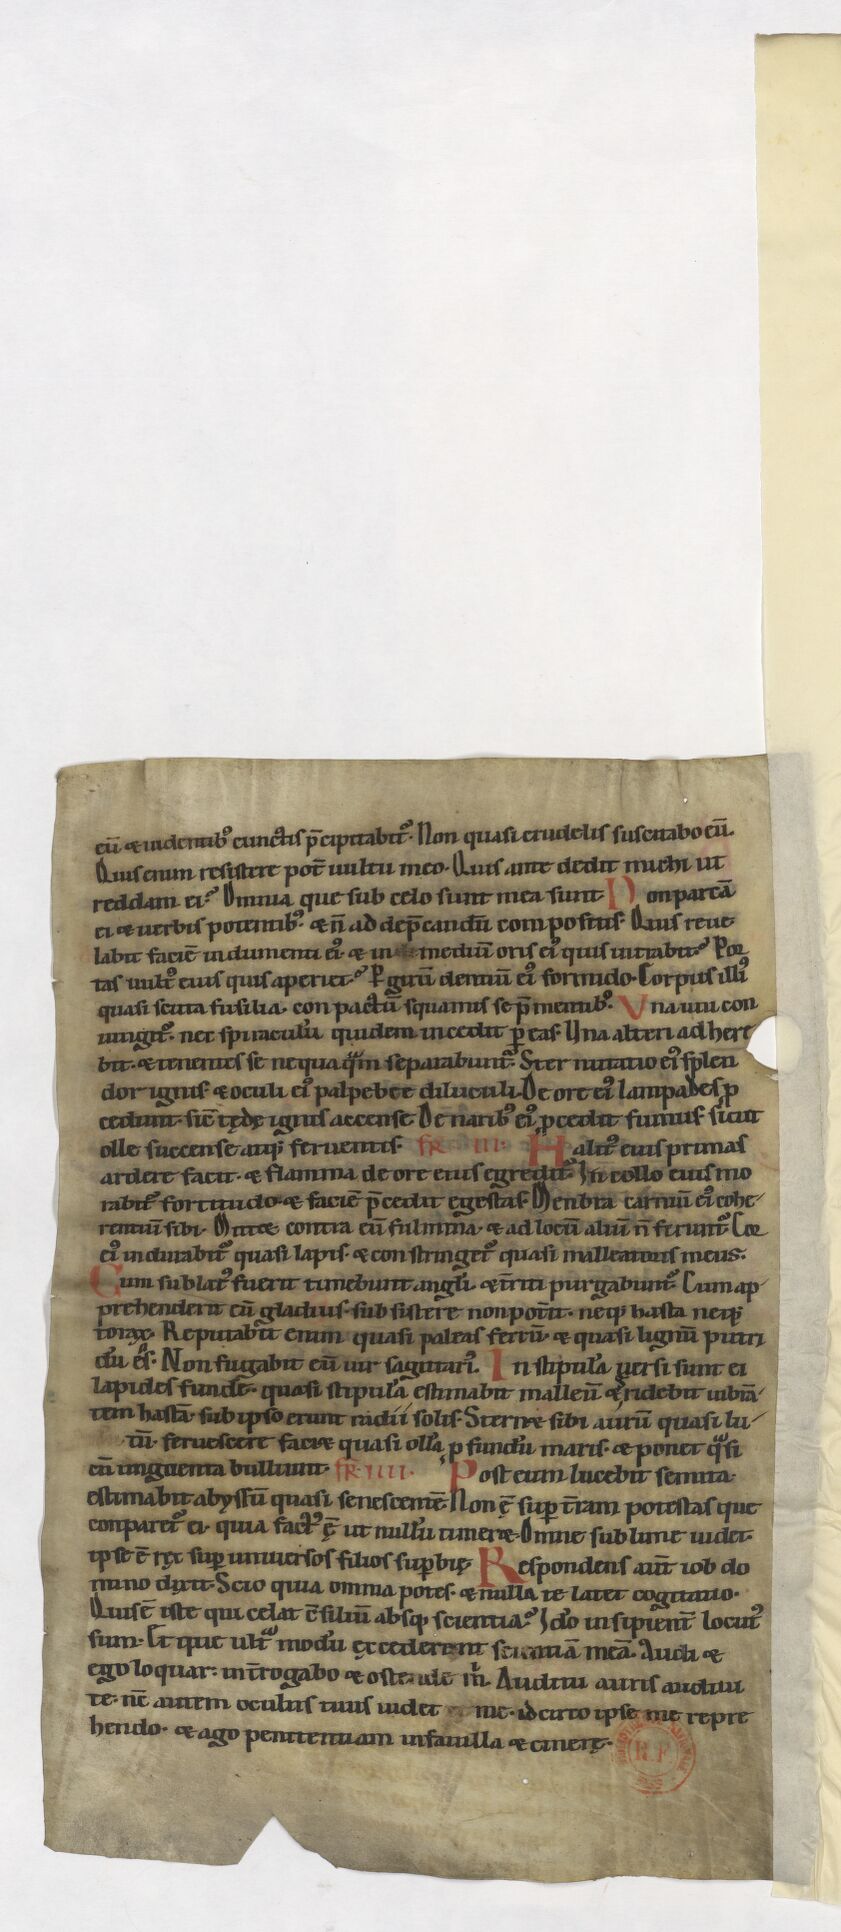 eū & uidentibꝰ cunctis p̄cipitabit᷑. Non quasi crudelis suscitabo eū.
Quis enim resistere pot̄ uultui meo. Quis ante dedit michi ut
reddam ei? Omnia que sub celo sunt mea sunt. Non parcā
ei & uerbis potentibꝰ. & n̄ ad dep̄candū compositis. Quis reue
labit faciē indumenti eiꝰ & in mediū oris eiꝰ quis intrabit? Por
tas uultꝰ eius quis aperiet? P girū dentiū eiꝰ formido. Corpus illiꝰ
quasi scuta fusilia. con pactū squamis se p̄mentibꝰ. Vna uni con
iungit᷑. nec spiraculū quidem incedit ꝑ eas. Una alteri adhere
bit. & tenentes se nequaquā separabunt᷑. Sternutatio eiꝰ splen
dor ignis. & oculi eiꝰ palpebre diluculi. De ore eiꝰ lampades ꝓ
cedunt. sic̄ tędę ignis accense. De naribꝰ eiꝰ ꝓcedit fumus. sicut
olle succense atq; feruentis. FR. III. Halitꝰ eius prunas
ardere facit. & flamma de ore eius egredit᷑. In collo eius mo
rabit᷑ fortitudo. & faciē p̄cedit egestas. Menbra carniū eiꝰ cohe-
rentiū sibi. Mittet contra eū fulmina. & ad locū aliū n̄ ferunt᷑. Cor
eiꝰ indurabit᷑ quasi lapis. & constringet᷑ quasi malleatoris incus.
Cum sublatꝰ fuerit timebunt angl̄i. & t̄riti purgabunt᷑. Cum ap-
prehenderit eū gladius. subsistere non pot̄it. neq; hasta neq;
torax. Reputabit enim quasi paleas ferrū. & quasi lignū putri
dū es. Non fugabit eū uir sagittariꝰ. In stipulā uersi sunt ei
lapides fundę. quasi stipulā estimabit malleū & ridebit uibrā-
tem hastā. sub ipso erunt radii solis. Sternet sibi aurū quasi lu-
tū. feruescere faciet quasi ollā ꝓfundū maris. & ponet quasi
cū unguenta bulliunt. FR. IIII. Post eum lucebit semita.
estimabit abyssū quasi senescentē. Non ē sup t̄ram potestas que
conparet᷑ ei. quia factꝰ ē ut nullū timeret. Omne sublime uidet.
ipse ē rex sup uniuersos filios supbię. Respondens aut̄ iob do
mino dixit. Scio quia omnia potes. & nulla te latet cogitatio.
Quis ē iste qui celat c̄siliū absq; scientia? Ido insipient̄ locutꝰ
sum. Et que ultra modū excederent scientiā meā. Audi &
ego loquar. int̄rogabo & ostende m̄. Auditu auris audiui
te. nc̄ autem oculus tuus uidet me. idcirco ipse me repre
hendo. & ago penitentiam in fauilla & cinere.
R.F